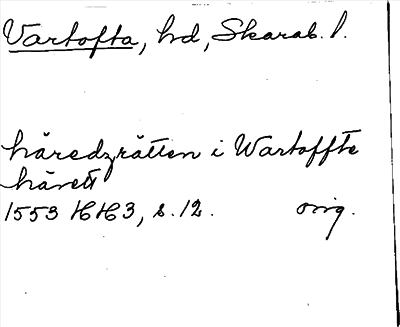 Vartofta, hd, Skarab. l.
häredzrätten i Wartoffte
härett
1553 HH3, s. 12. orig.